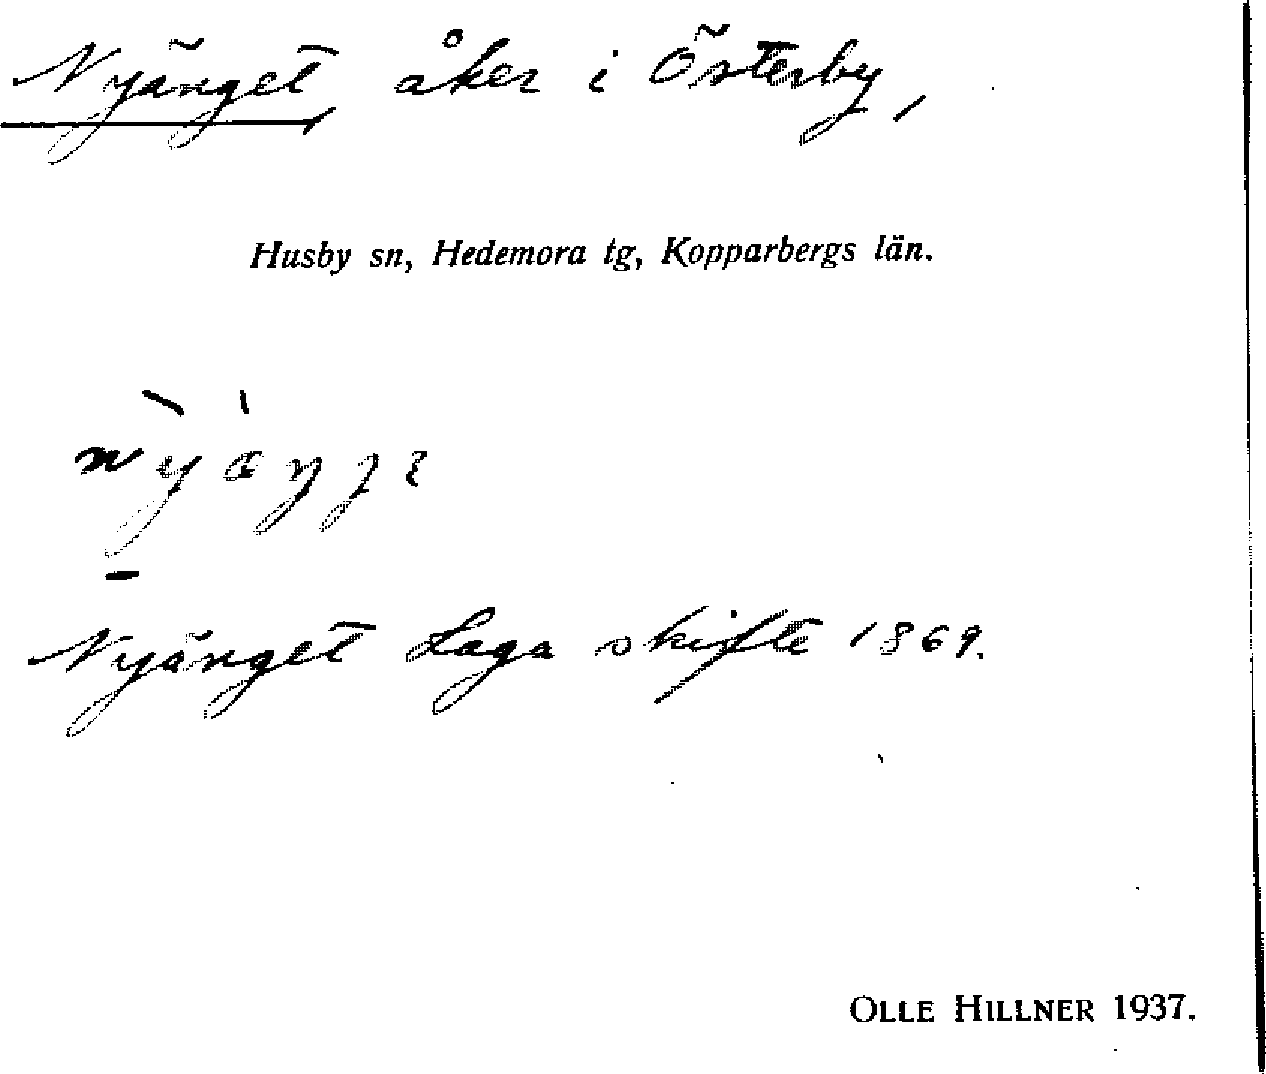 Nyänget, åker i Österby,
Husby sn, Hedemora tg, Kopparbergs län.
Nyänget Laga skifte 1869.
OLLE HILLNER 1937.